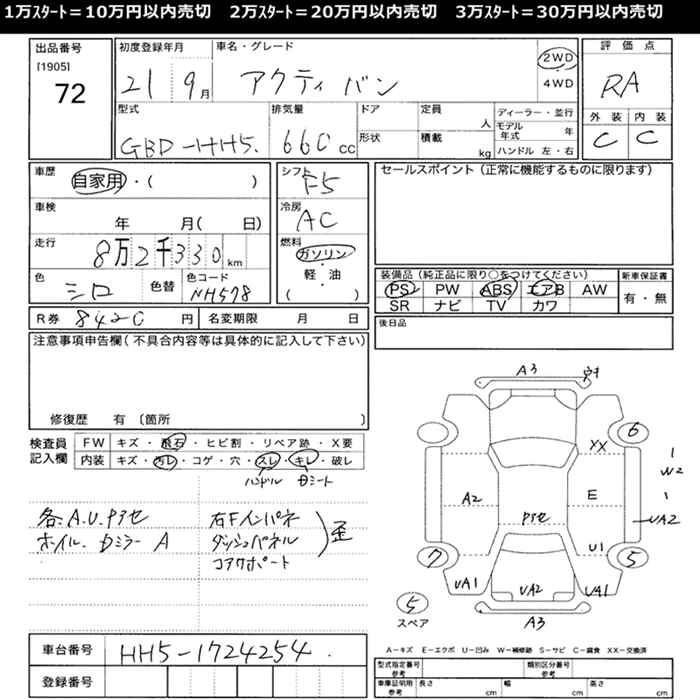 1万ｽﾀｰﾄ＝10万円以内売切　2万ｽﾀｰﾄ＝20万円以内売切　3万ｽﾀｰﾄ＝30万円以内売切
出品番号 初度登録年月 車名・グレード 評価点
[1905]
72 21 9月 アクティバン 2WD・4WD RA
型式 排気量 ドア 定員 人 ディーラー・並行 外装 内装
GBD-HH5. 660cc 形状 積載 kg モデル年式 年 C C
ハンドル 左・右
車歴 自家用・(　) シフト F5 セールスポイント（正常に機能するものに限ります）
車検 年 月( 日) 冷房 AC
走行 8万2千330km 燃料 ガソリン・軽・油
(　)
色 シロ 色替 色コード NH578
装備品（純正品に限り○をつけてください） 新車保証書
PS PW ABS エアB AW 有・無
SR ナビ TV カワ
R券 8420円 名変期限 月 日 後日品
注意事項申告欄（不具合内容等は具体的に記入して下さい）
修復歴 有 〔箇所 〕
検査員記入欄 FW キズ・飛石・ヒビ割・リペア跡・X要
内装 キズ・汚レ・コゲ・穴・スレ・キレ・破レ
ハンドル シート
各A.U. 右Fインパネ 歪
ホイル. ミラー A ダッシュパネル
コアサポート
A3
6
XX
W2
A2 E
UA2
U1
7 5
UA1 UA2 UA1
5
スペア
A3
A－キズ E－エクボ U－凹み W－補修跡 S－サビ C－腐食 XX－交換済
車台番号 HH5-1724254.
登録番号
型式指定番号 参考 類別区分番号 参考
車庫証明用 参考 長さ cm 幅 cm 高さ cm